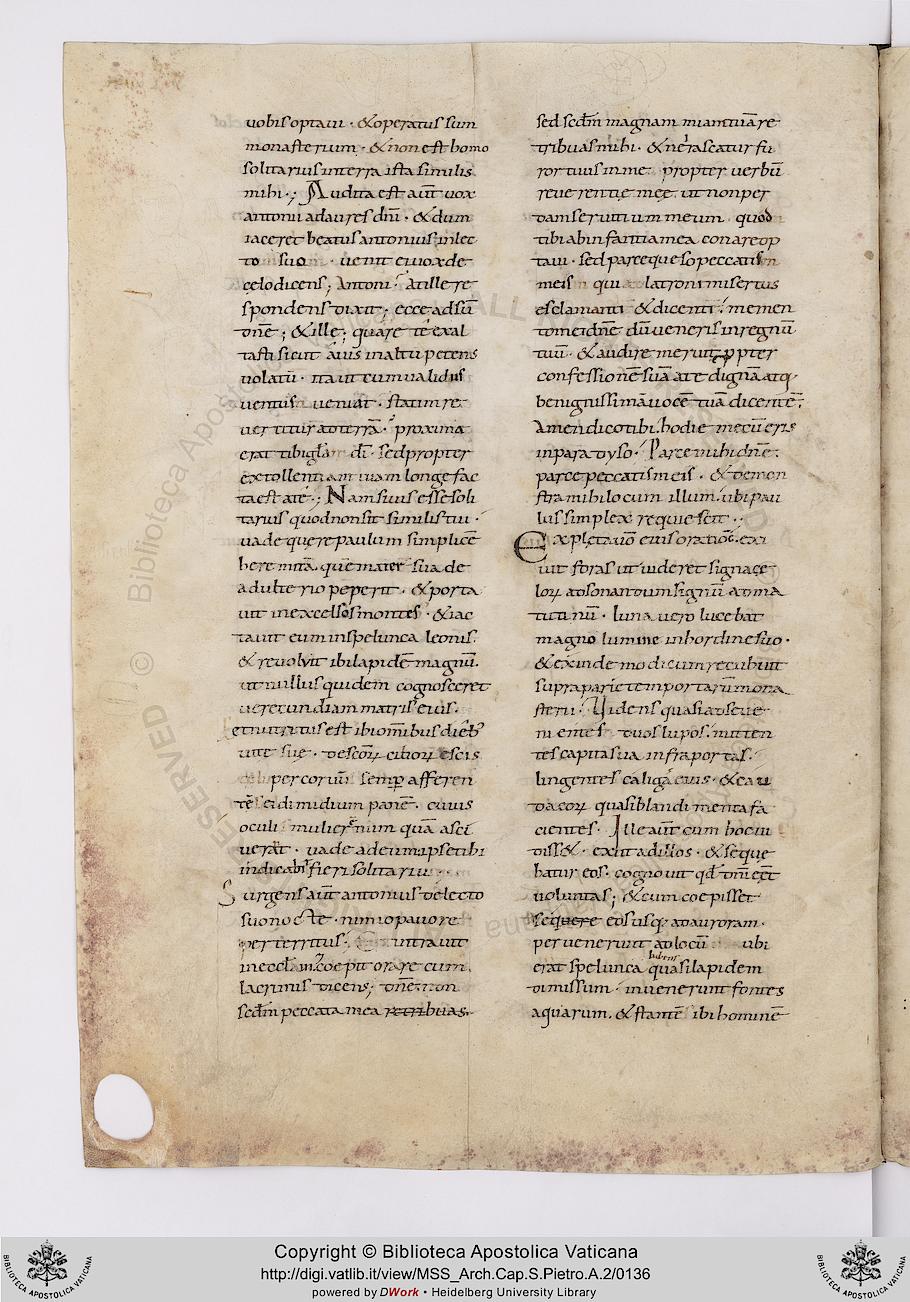 uobis optaui · & operatus sum
monasterium · & non est homo
solitarius in terra ista similis
mihi ·; Audita est aut̄ uox
antonii ad aures dn̄i · & dum
iaceret beatus antonius in lec
to suo uenit ei uox de
celo dicens; Antoni · at ille re
spondens dixit; ecce adsū
dn̄e; & ille; quare te exal
tasti sicut auis in altū petens
uolatū · ita ut eum ualidus
uentus ueniat · statim re
uertitur ad terrā · proxima
erat tibi dī · sed propter
extollentiam tuam longe fac
ta est a te ·; Nam si uis esse soli
tarius quod non sit similis tui ·
uade quere paulum simplicē
heremitā · quē mater sua de
adulterio peperit · & porta
uit in excelsos montes · & iac
tauit eum in spelunca leonis ·
& reuoluit ibi lapidē magnū ·
ut nullus quidem cognosceret
uerecundiam matris eius ·
et nutritus est ibi omnibus dieb;
uite sue · de escis
per coruū semp̄ afferen
tē ei dimidium panē · cuius
oculi mulierem nūquā aspi
uerat · uade ad eum ipse tibi
indicabit fieri solitariū
Surgens aut̄ antonius de lecto
suo nocte · nimio pauore
perterritus · intrauit
in eccl̄am · coepit orare cum
lacrimis dicens; dn̄e non
sedm̄ peccata mea retribuas ·
sed sedm̄ magnam miam tuā re
tribuas mihi · & ne irascatur fu
ror tuus in me propter uerbū
reuerentie mee · ut non per
dam seruitium meum · quod
tibi ab infantia mea conare op
taui · sed parce queso peccatis
meis qui a latroni misertus
es clamanti & dicenti · memen
to mei dn̄e dū ueneris in regnū
tuū · & audire meruit p̄pter
confessionē suā a te dignā atq;
benignissimā uocē tuā dicentē;
Amen dico tibi · hodie mecū eris
in paradyso · Parce mihi dn̄e ·
parce peccatis meis · & demon
stra mihi locum illum · ubi pau
lus simplex requiescit ·;
Expleta uō eius oratioē · exi
uit foras ut uideret signa ce
lor̄ ad sonandum signū ad ma
tutinū · luna uero lucebat
magno lumine in hordine suo ·
& exinde modicum recubuit
supra parietem portarū mona
sterii · Uidens quasi adseue
nientes duos lupos · mitten
tes capita sua infra portas ·
lingentes caligā eius · & cau
da eor̄ quasi blandimenta fa
cientes · Ille aut̄ cum hoc ui
diss& · exiit ad illos · & seque
batur eos · cognouit qd̄ dn̄i eēt
uoluntas; & cum coepisset
sequere eos usq; ad auroram ·
peruenerunt ad locū ubi
erat spelunca quasi lapidem
dimissum · inuenerunt fontes
aquarum · & stantē ibi hominē
Copyright © Biblioteca Apostolica Vaticana
http://digi.vatlib.it/view/MSS_Arch.Cap.S.Pietro.A.2/0136
powered by DWork • Heidelberg University Library